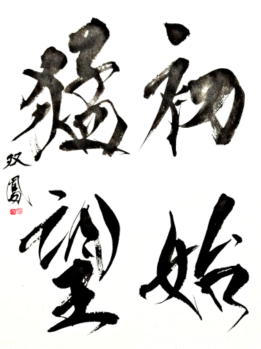 初始
猛望
双鳳